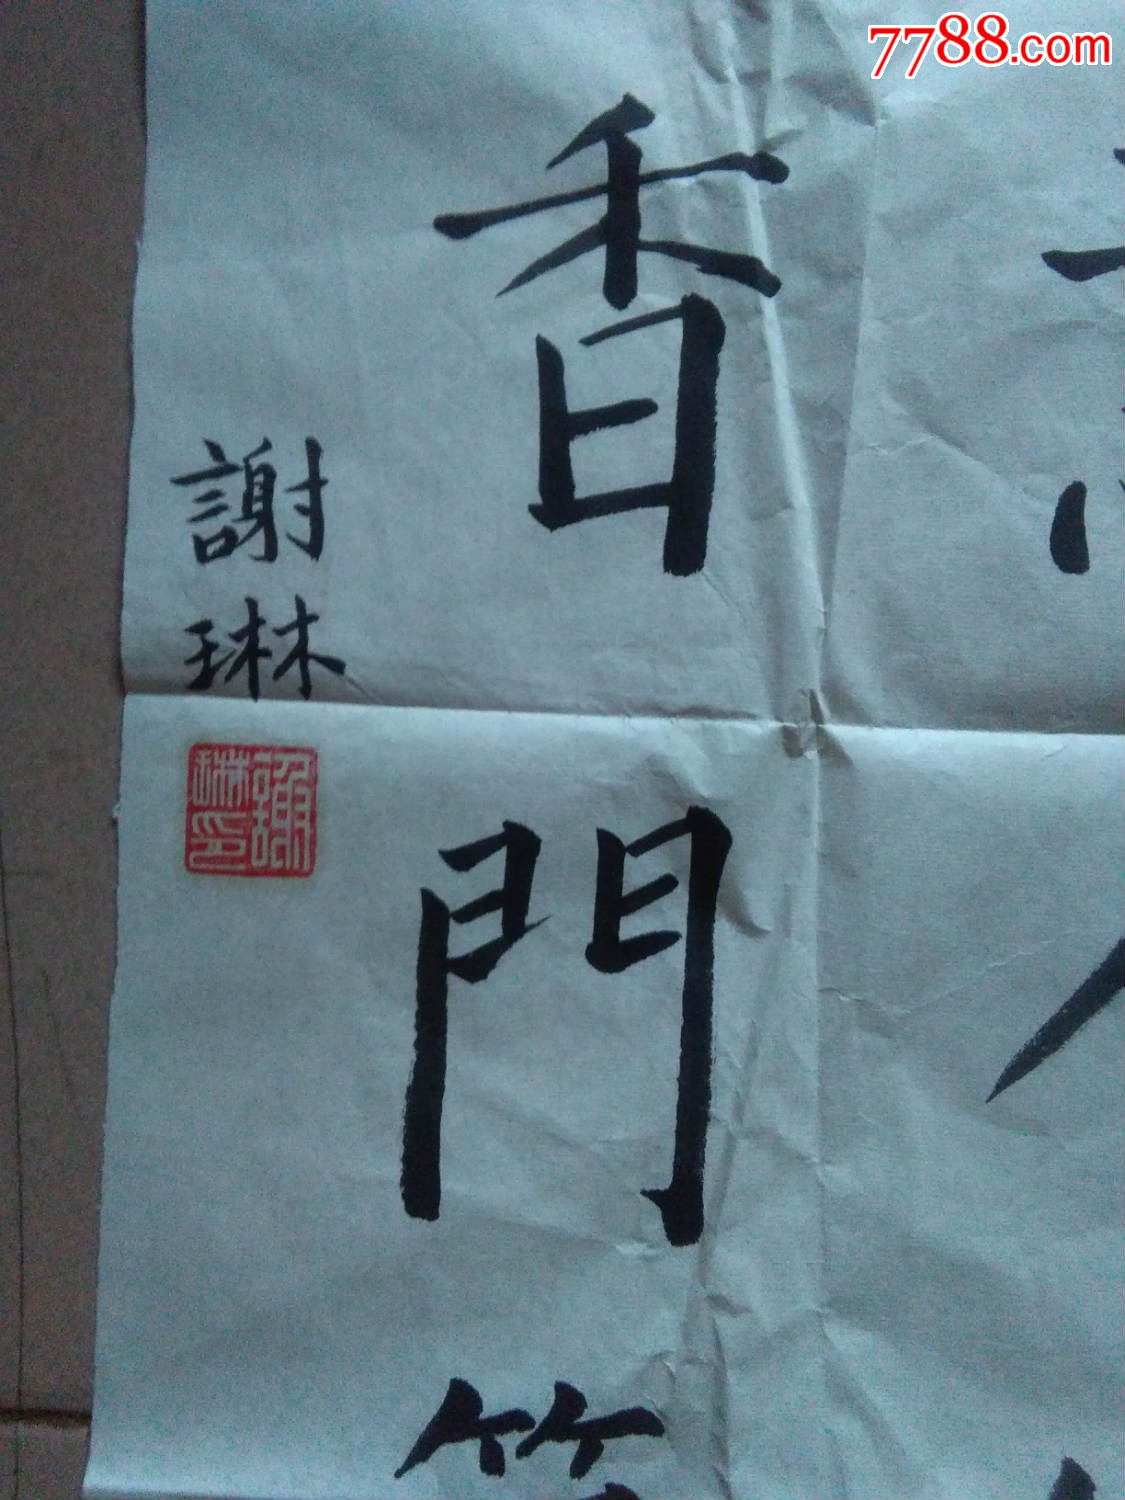 7788.com
香門
謝琳
謝琳印